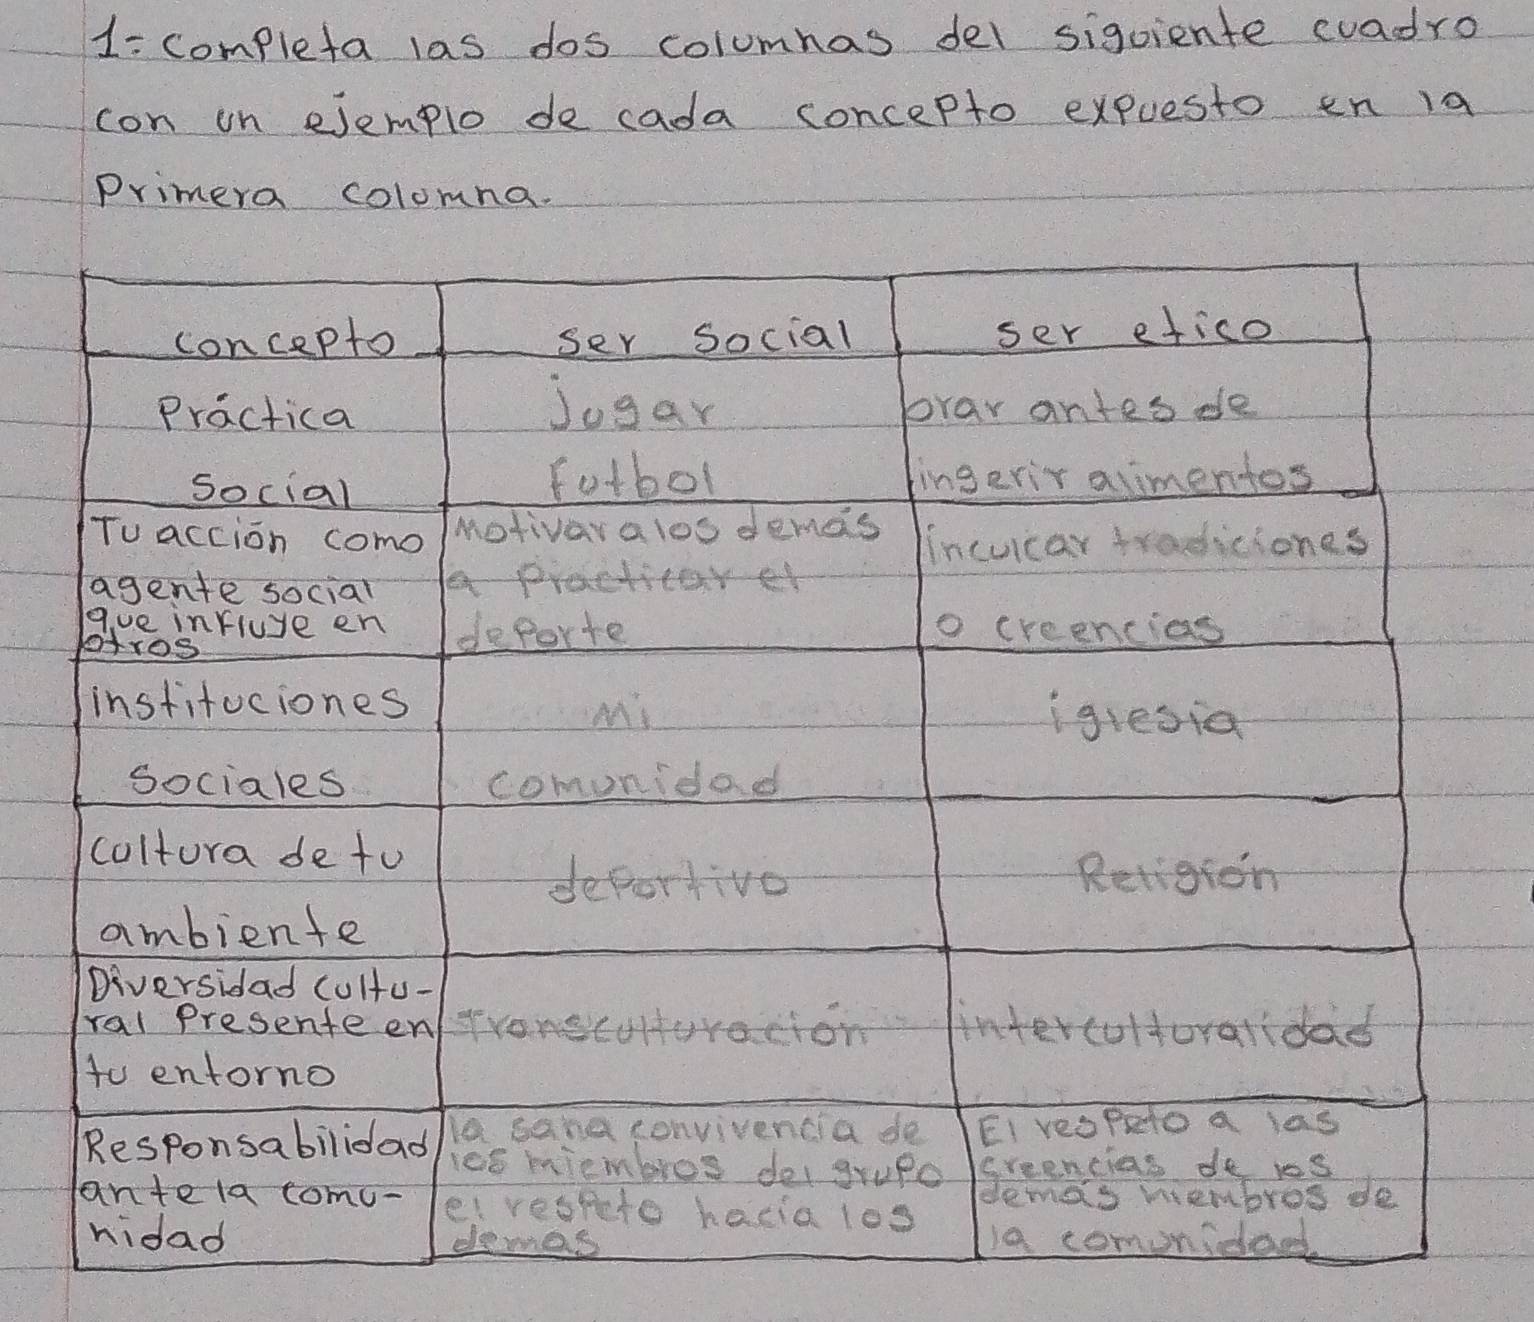 1= completa las dos columnas del siguiente cuadro
con un ejemplo de cada concepto expuesto en la
Primera columna.
concepto ser social ser etico
Práctica Jugar orar antes de
social Futbol ingerir alimentos
Tu acción como Motivar a los demás inculcar tradiciones
agente social a Practicar el
que influye en deporte o creencias
otros
instituciones Mi iglesia
sociales comunidad
cultura de tu deportivo Religión
ambiente
Diversidad cultu-
ral Presente en Transculturación interculturalidad
tu entorno
Responsabilidad la sana convivencia de El respeto a las
ante la comu- los miembros del grupo creencias de los
nidad el respeto hacia los demás miembros de
demas la comunidad.